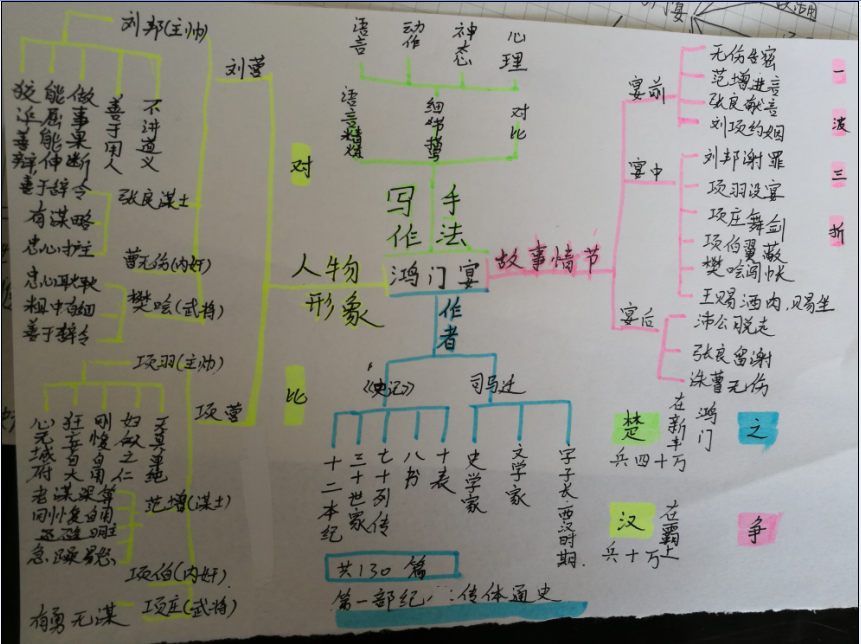 鸿门宴
写作手法
语言
动作
神态
心理
语言精炼
细节描
对比
人物形象
对比
刘营
刘邦(主帅)
狡诈善辩
能屈能伸
做事果断
善于用人
不讲道义
张良谋士
善于辞令
有谋略
忠心护主
曹无伤(内奸)
樊哙(武将)
忠心耿耿
粗中有细
善于辞令
项营
项羽(主帅)
心无城府
狂妄自大
刚愎自用
妇人之仁
天真单纯
范增(谋士)
老谋深算
刚愎自用
急躁易怒
项伯(内奸)
项庄(武将)
有勇无谋
作者
《史记》
十二本纪
三十世家
七十列传
八书
十表
共130篇
第一部纪传体通史
司马迁
史学家
文学家
字子长,西汉时期.
故事情节
一波三折
宴前
无伤告密
范增进言
张良献言
刘项约姻
宴中
刘邦谢罪
项羽设宴
项庄舞剑
项伯翼蔽
樊哙闯帐
王赐酒肉,赐坐
宴后
沛公脱走
张良留谢
诛曹无伤
楚
兵四十万
在新丰鸿门
之
汉
兵十万
在霸上
争